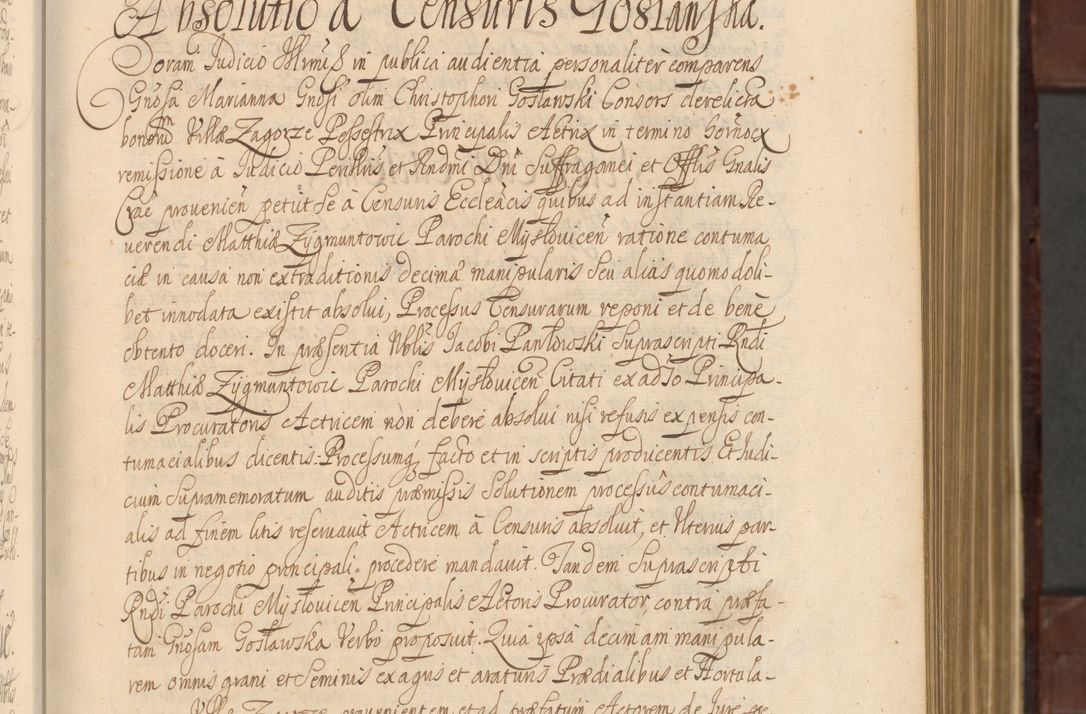 Absolutio a Censuris Gosławska.
Coram Judicio Illmūs in publica audientia personaliter comparens
Gnōsa Marianna Gnōsi olim Christophori Gosławski Consors derelicta
bonorū Villæ Zagorze Possestrix Principalis Actrix in termino hōrno ex
remissione à Judicio Perillūs et Rndmi Dnī Suffraganei et Offlis Gnalis
Crac̄ provenien̄ petiit se à Censuris Eccleācis quibus ad instantiam Re-
verendi Matthiæ Zygmuntowic Parochi Mysłovicen̄ ratione contuma
ciæ in causa non extraditionis decimæ manipularis seu alias quomodoli-
bet innodata existit absolui, Processus Censurarum reponi et de bene
obtento doceri. In præsentia Nblis Jacobi Pawłowski Suprascripti Rndi
Matthiæ Zygmuntowic Parochi Mysłovicen̄ Citati ex adso Principa-
lis Procuratoris Actricem nòn debere absolui nisi refusis expensis con-
tumacialibus dicentis: Processumq; facto et in scriptis producentis Et Judi-
cium Supramemoratum auditis præmissis Solutionem processūs contumaci-
alis ad finem litis reservavit Actricem à Censuris absoluit, et Utrvis par-
tibus in negotio principali procedere mandavit. Tandem Suprascripti
Rndi Parochi Mysłovicen̄ Principalis Actoris Procurator contra præfa-
tam Gnōsam Gosławska Verbo proposuit. Quia ipsa decimam manipula-
rem omnis grani et Seminis ex agris et araturis Prædialibus et Hortula-
Villæ Zagorze provenientem et ad præfatum Actorem de Jure